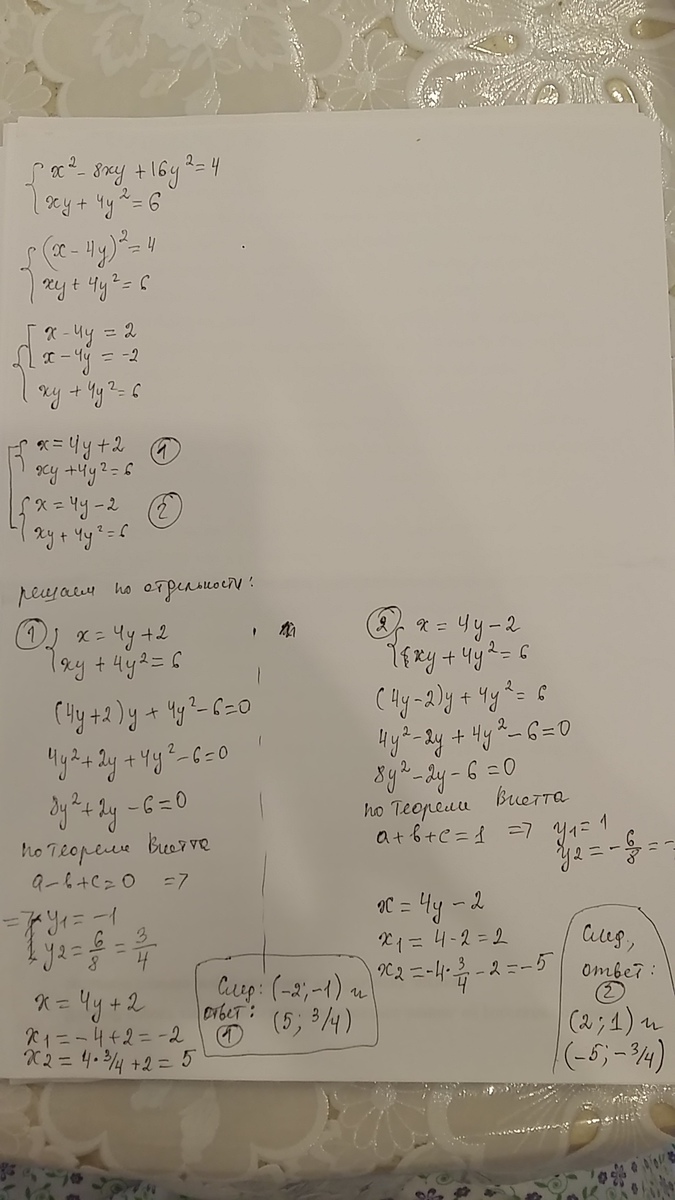 x² - 8xy + 16y² = 4
xy + 4y² = 6
(x - 4y)² = 4
xy + 4y² = 6
x - 4y = 2
x - 4y = -2
xy + 4y² = 6
x = 4y + 2 ①
xy + 4y² = 6
x = 4y - 2 ②
xy + 4y² = 6
решаем по отдельности:
① x = 4y + 2
xy + 4y² = 6
(4y + 2)y + 4y² - 6 = 0
4y² + 2y + 4y² - 6 = 0
8y² + 2y - 6 = 0
по теореми Виетта
a - b + c = 0 =>
=> y₁ = -1
y₂ = 6/8 = 3/4
x = 4y + 2
x₁ = -4 + 2 = -2
x₂ = 4·3/4 + 2 = 5
След: (-2; -1) и
ответ: (5; 3/4)
①
② x = 4y - 2
xy + 4y² = 6
(4y - 2)y + 4y² = 6
4y² - 2y + 4y² - 6 = 0
8y² - 2y - 6 = 0
по теореми Виетта
a + b + c = 1 => y₁ = 1
y₂ = -6/8 = -
x = 4y - 2
x₁ = 4 - 2 = 2
x₂ = -4·3/4 - 2 = -5
След,
ответ:
②
(2; 1) и
(-5; -3/4)